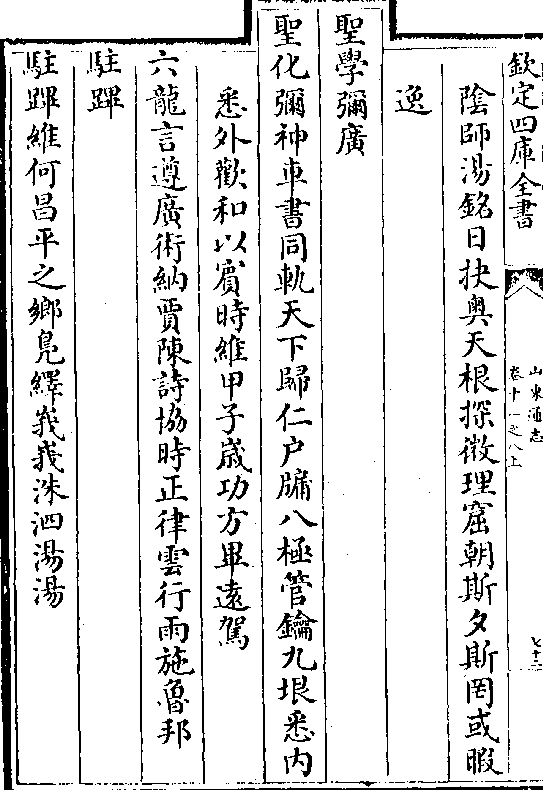 欽定四庫全書
山東通志
卷十一之八上
七十三
陰師湯銘日抉奥天根探微理窟朝斯夕斯罔或暇
逸
聖學彌廣
聖化彌神車書同軌天下歸仁户牖八極管鑰九垠悉内
悉外歡和以賓時維甲子歲功方畢遠駕
六龍言遵廣術納賈陳詩協時正律雲行雨施魯邦
駐蹕
駐蹕維何昌平之鄉鳧繹峩峩洙泗湯湯